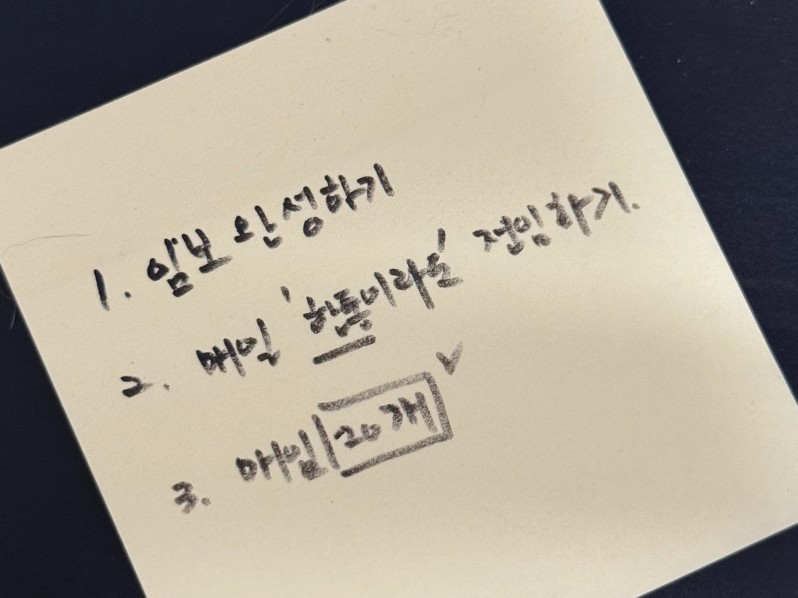 1. 임보 완성하기
2. 매일 '한톨이라도' 전임하기.
3. 매일 20개